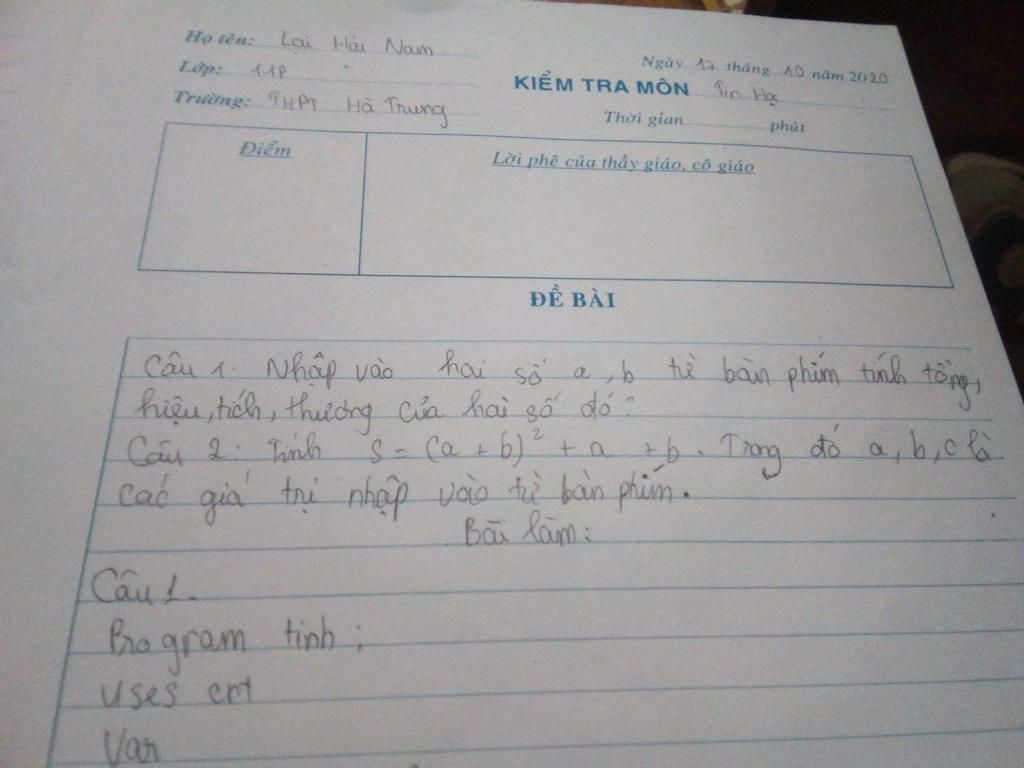 Họ tên: Lại Hải Nam
Lớp: 11P
Trường: THPT Hà Trung
Ngày 17 tháng 10 năm 2020
KIỂM TRA MÔN Tin Học
Thời gian phút
Điểm
Lời phê của thầy giáo, cô giáo
ĐỀ BÀI
Câu 1. Nhập vào hai số a, b từ bàn phím tính tổng,
hiệu, tích, thương của hai số đó?
Câu 2: Tính S = (a + b)² + a + b. Trong đó a, b, c là
các giá trị nhập vào từ bàn phím.
Bài làm:
Câu 1.
Program tinh;
uses crt
Var